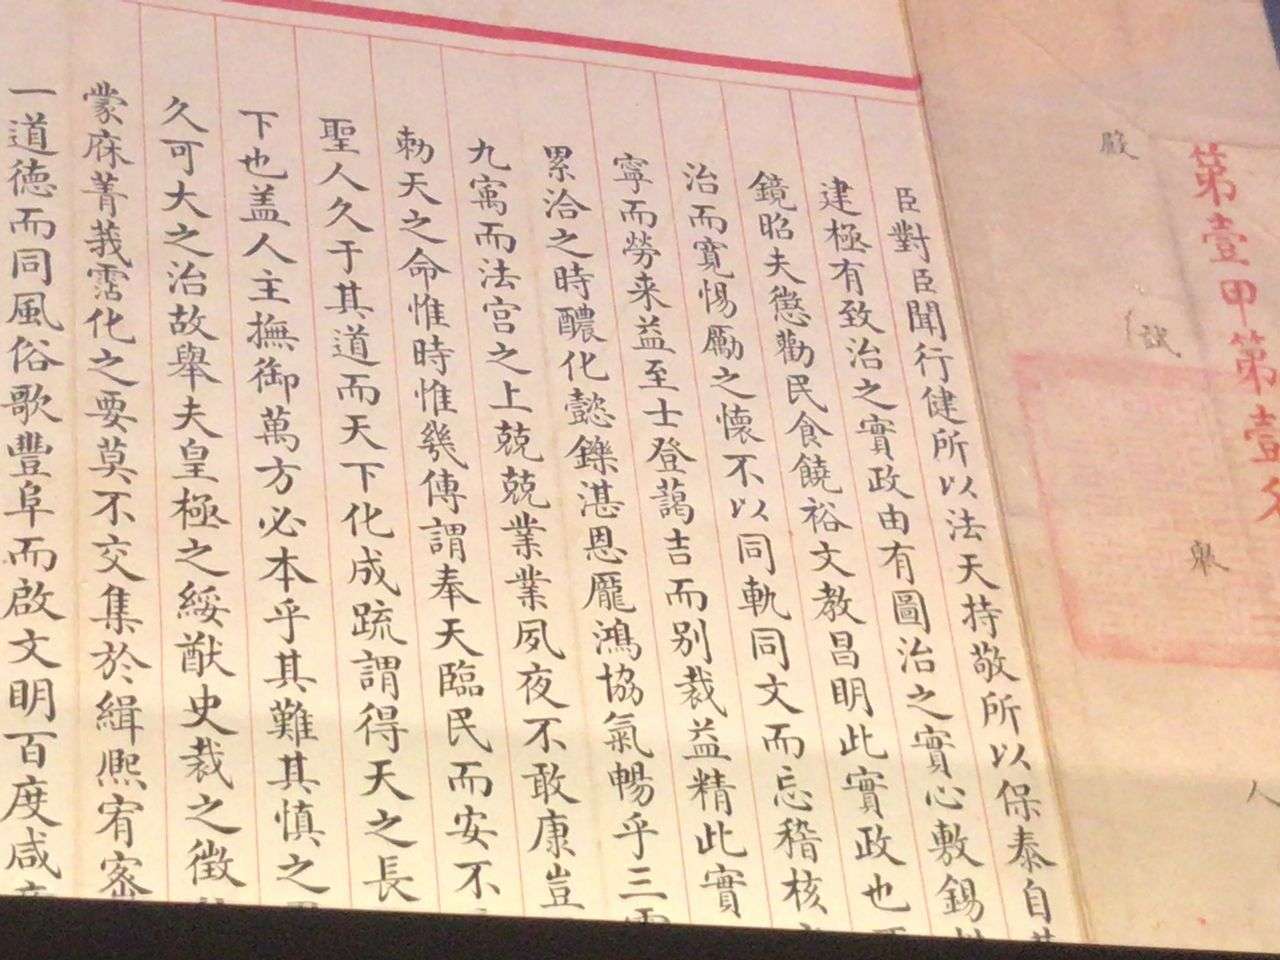 第壹甲第壹名
殿
試
舉
人
臣對臣聞行健所以法天持敬所以保泰自
建極有致治之實政由有圖治之實心敷錫
鏡昭夫懲勸民食饒裕文教昌明此實政也
治而寬惕勵之懷不以同軌同文而忘稽核
寧而勞来益至士登藹吉而別裁益精此實
累洽之時醲化懿鑠湛恩厖鴻協氣暢乎三
九㝢而法宫之上兢兢業業夙夜不敢康豈
勅天之命惟時惟幾傳謂奉天臨民而安不
聖人久于其道而天下化成疏謂得天之長
下也盖人主撫御萬方必本乎其難其慎之
久可大之治故舉夫皇極之綏猷史裁之徴
蒙庥菁莪霑化之要莫不交集於緝熈宥密
一道德而同風俗歌豐阜而啟文明百度咸